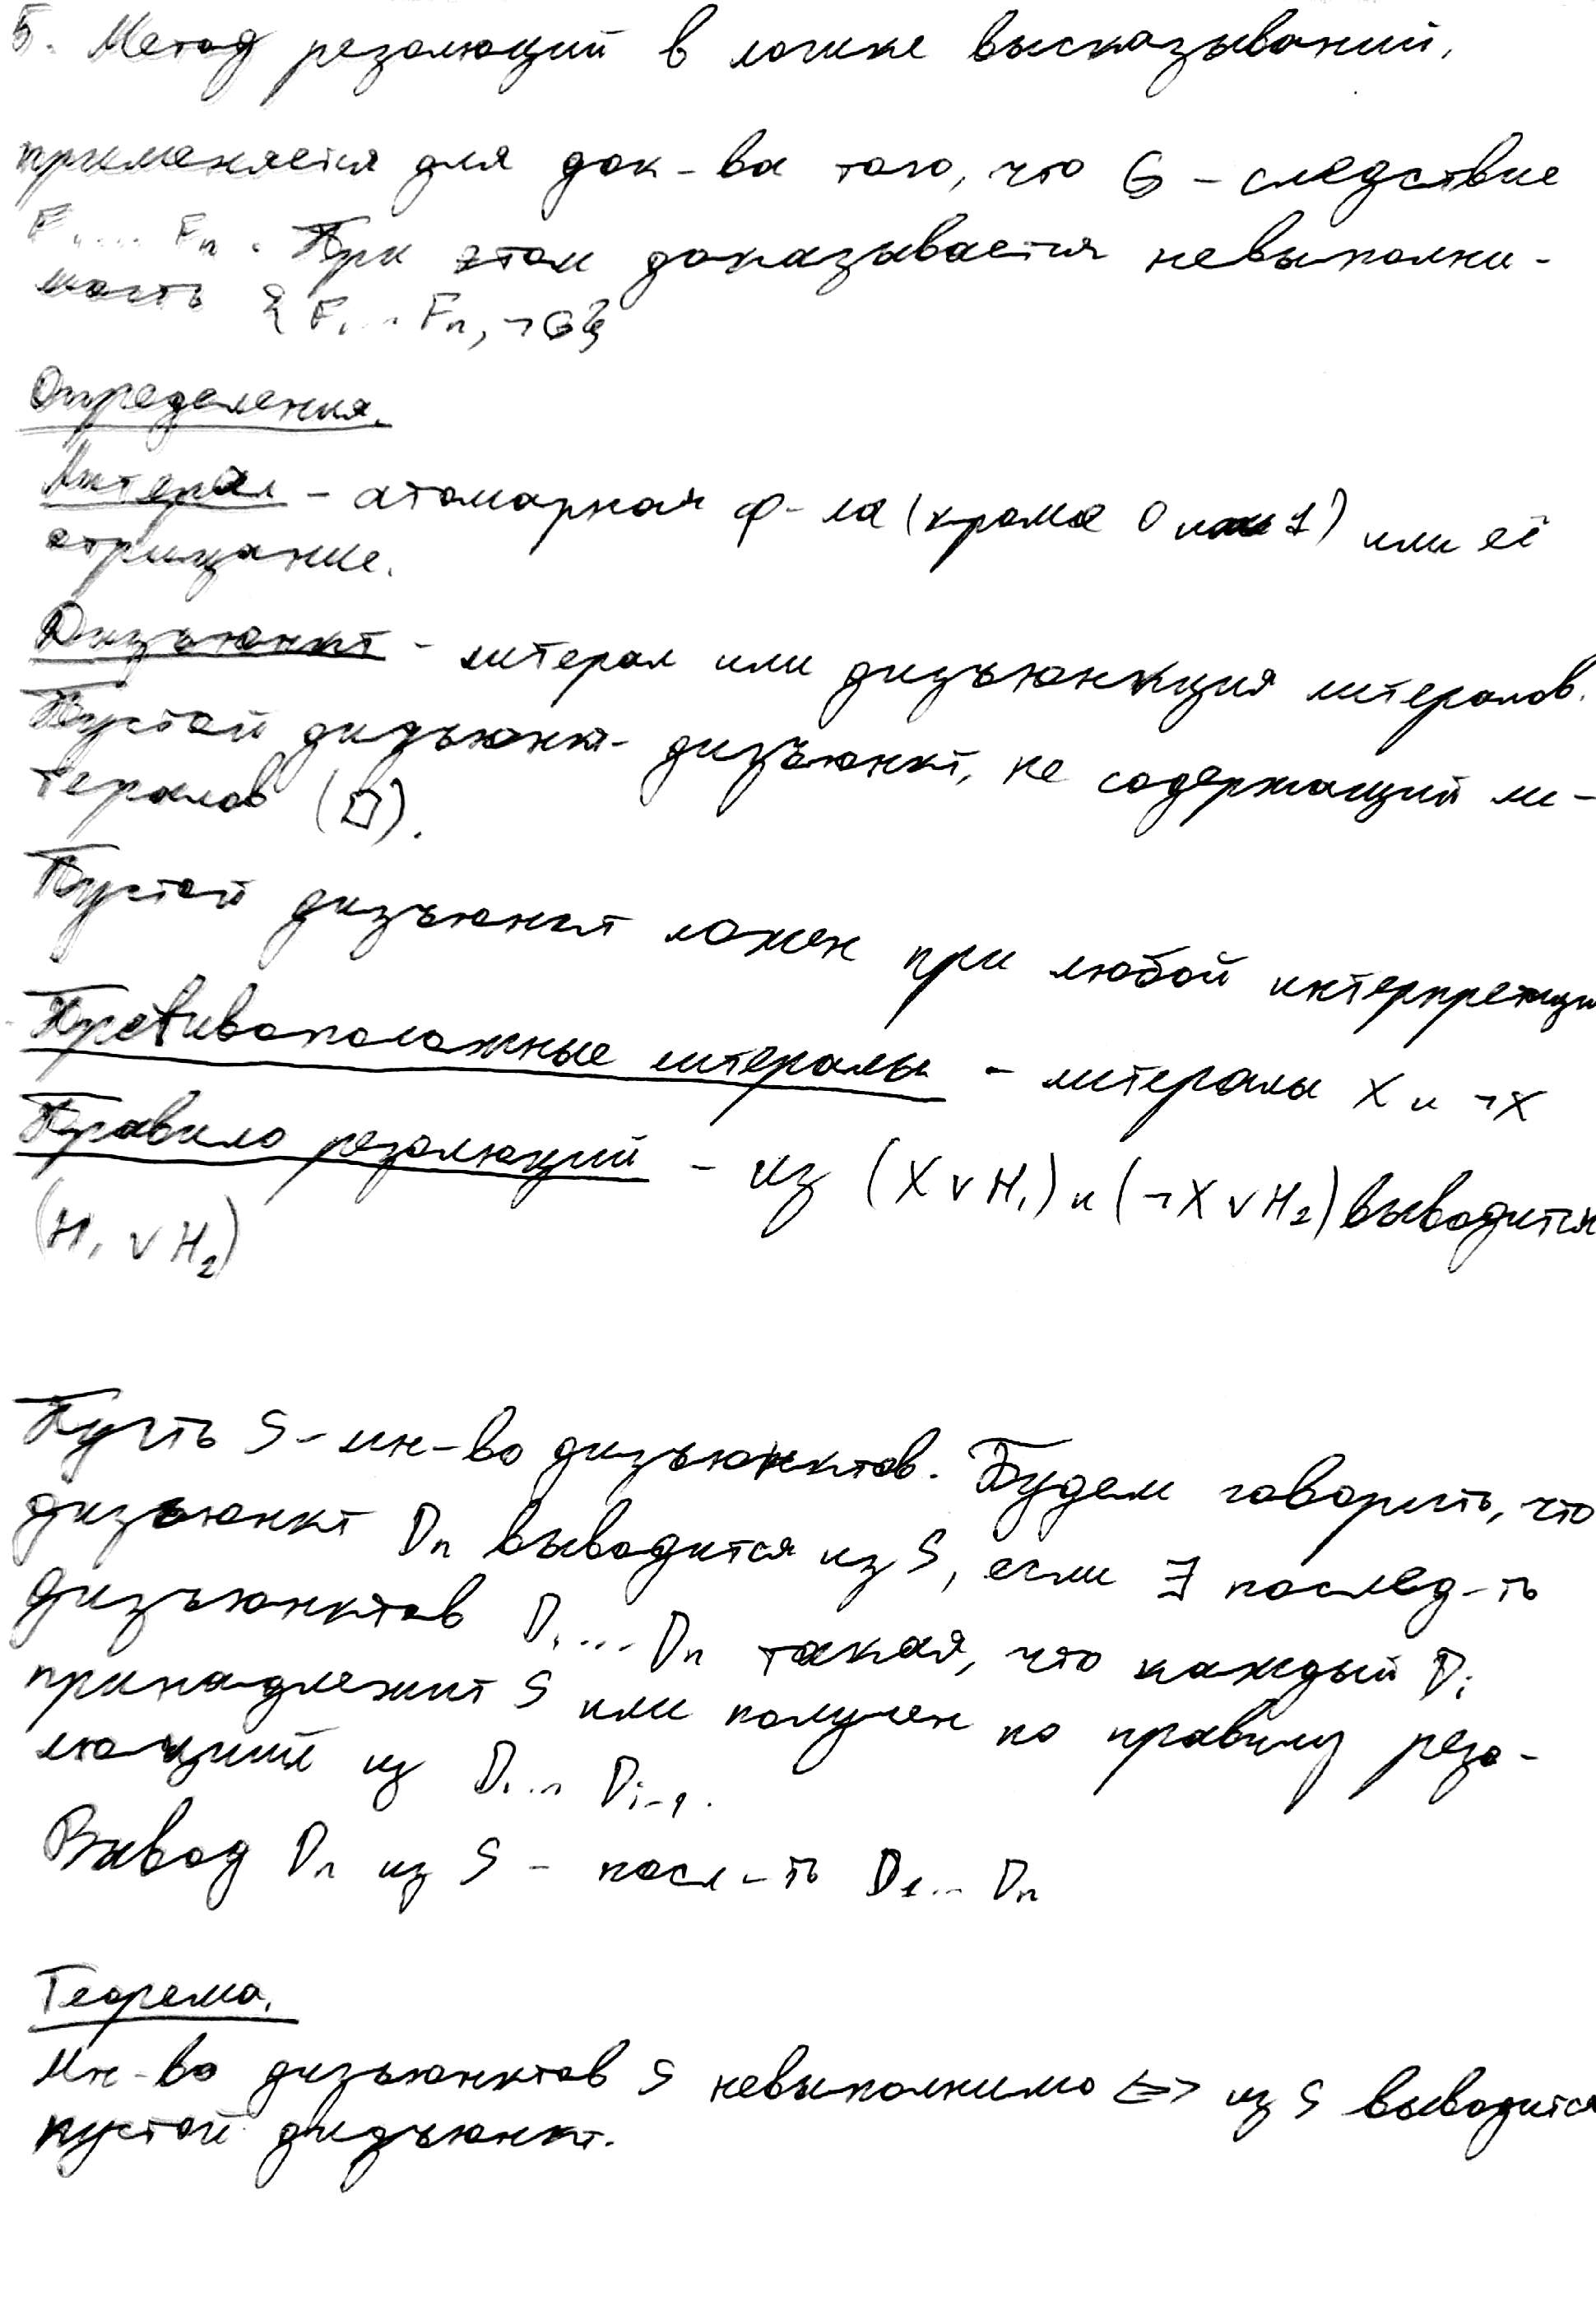 5. Метод резолюций в логике высказываний.
применяется для док-ва того, что G - следствие
F₁... Fₙ. При этом доказывается невыполни-
мость {F₁... Fₙ, ¬G}
Определения.
Литерал - атомарная ф-ла (кроме 0 и 1) или её
отрицание.
Дизъюнкт - литерал или дизъюнкция литералов.
Пустой дизъюнкт - дизъюнкт, не содержащий ли-
тералов (□).
Пустой дизъюнкт ложен при любой интерпретаци
Противоположные литералы - литералы X и ¬X
Правило резолюций - из (X ∨ H₁) и (¬X ∨ H₂) выводится
(H₁ ∨ H₂)
Пусть S - мн-во дизъюнктов. Будем говорить, что
дизъюнкт Dₙ выводится из S, если ∃ послед-ть
дизъюнктов D₁... Dₙ такая, что каждый Dᵢ
принадлежит S или получен по правилу резо-
люций из D₁... Dᵢ₋₁.
Вывод Dₙ из S - посл-ть D₁... Dₙ
Теорема.
Мн-во дизъюнктов S невыполнимо <=> из S выводится
пустой дизъюнкт.